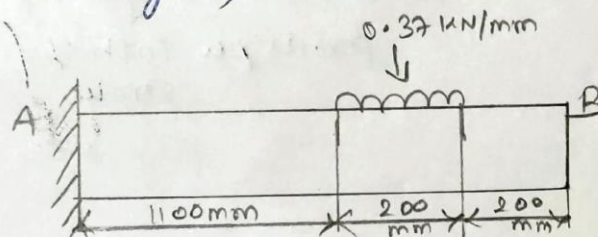 0.37 KN/mm
A B
1100mm 200 mm 200 mm